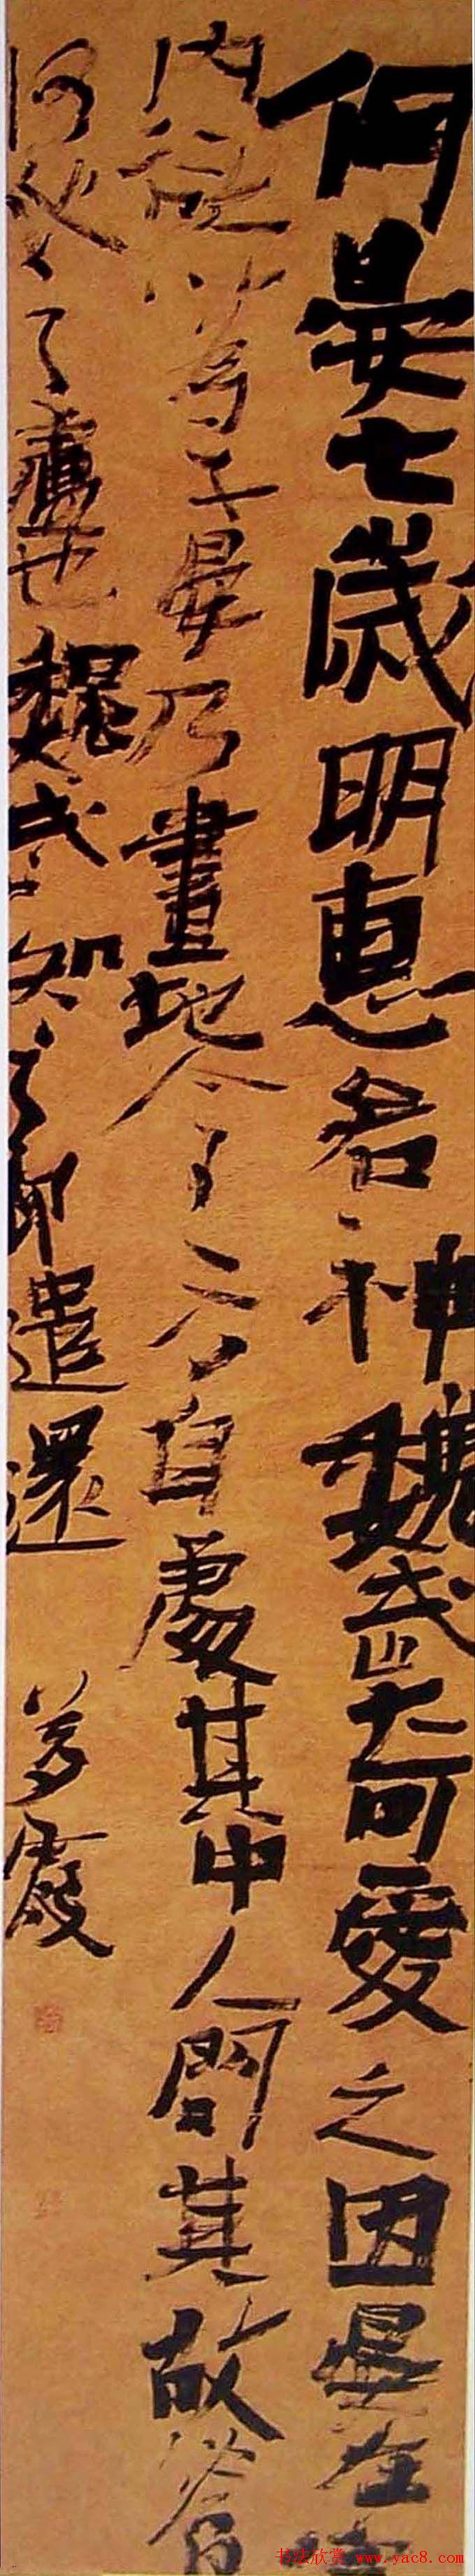 何晏七歲明惠若神魏武奇愛之因晏在
內欲以為子晏乃畫地令方自處其中人問其故答曰
何氏之廬也魏武知之即遣還
书法欣赏 www.yac8.com